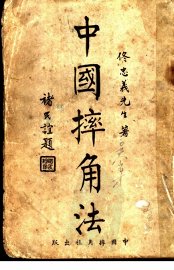 佟忠義先生著
中國摔角法
褚民誼題
中國摔角社出版